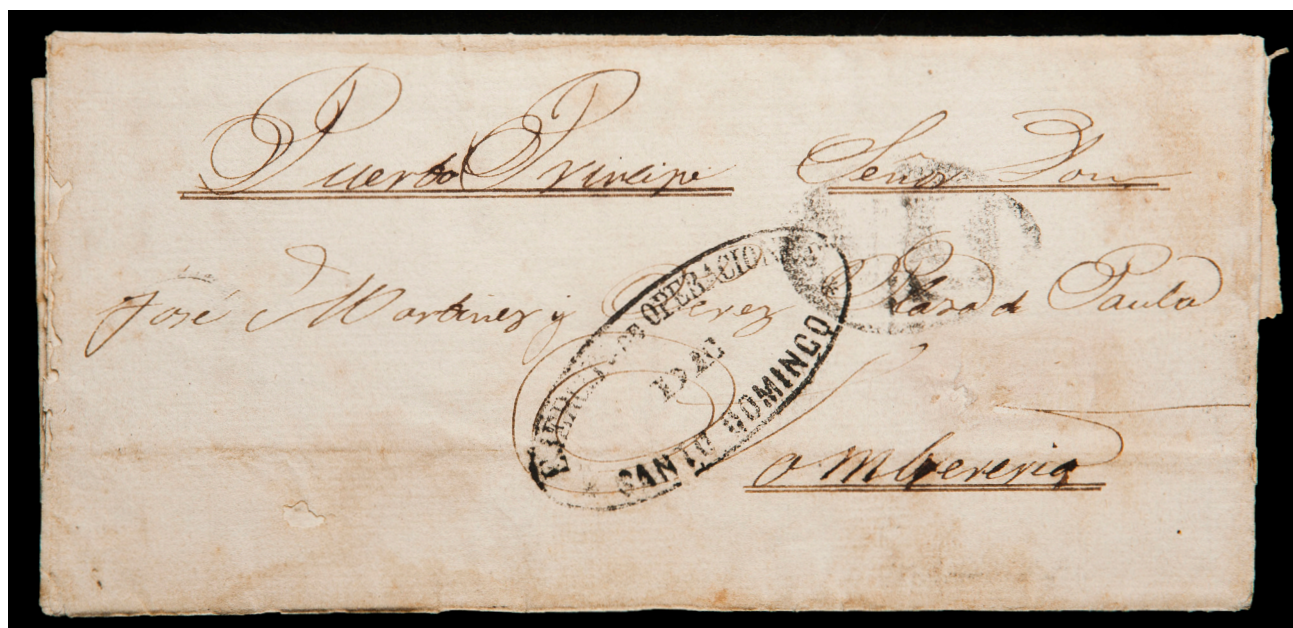 Puerto Principe Señor Don
José Martinez y Perez Plaza de Paula
Sombrereria
EJERCITO DE OPERACIONES
SANTO DOMINGO